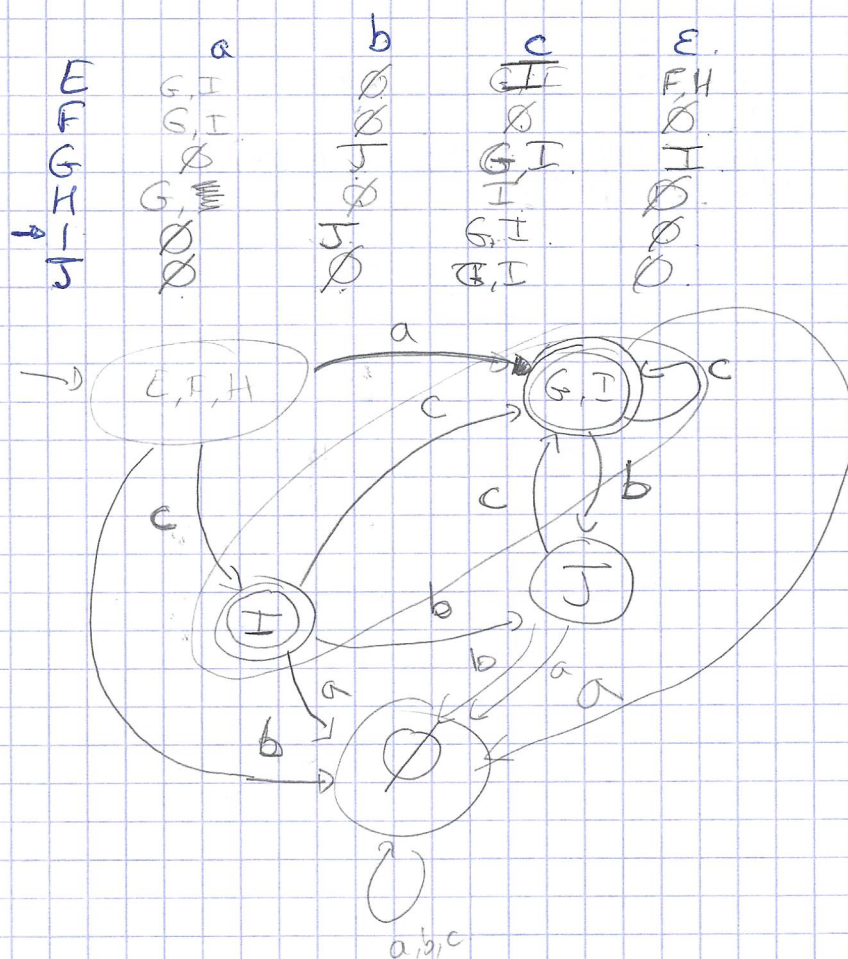 a b c ε.
E G,I ∅ I F,H
F G,I ∅ ∅ ∅
G ∅ J G,I. I
H G, ∅ I ∅
→ I ∅ J G,I. ∅
J ∅ ∅ G,I ∅.
a
E,F,H G,I c
c
c c b
I b J
a b a a
b ∅
a,b,c